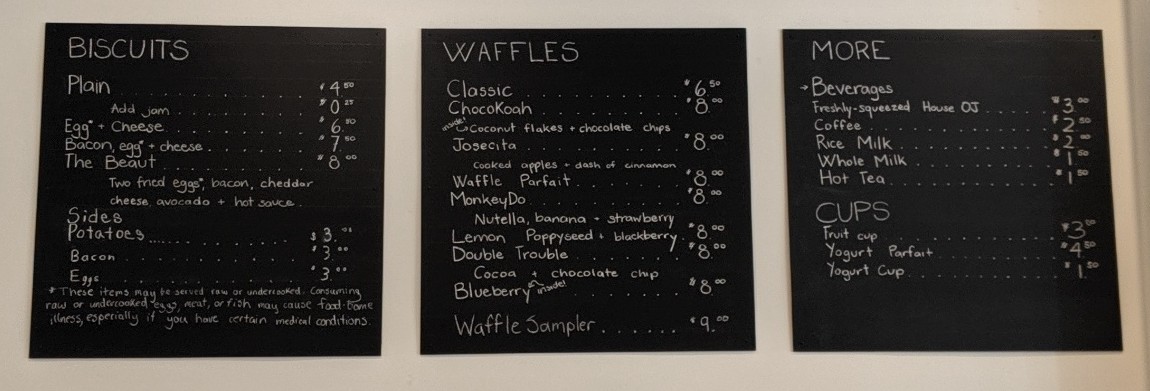 BISCUITS
Plain . . . . . . . . . . $4.50
Add jam . . . . . . . . . . $0.25
Egg* + Cheese . . . . . . . . . . $6.50
Bacon, egg* + cheese . . . . . . . . $7.50
The Beaut . . . . . . . . . . $8.00
Two fried eggs*, bacon, cheddar
cheese, avocado + hot sauce.
Sides
Potatoes . . . . . . . . . . $3.
Bacon . . . . . . . . . . $3.00
Eggs . . . . . . . . . . $3.00
* These items may be served raw or undercooked. Consuming
raw or undercooked eggs, meat, or fish may cause food-borne
illness, especially if you have certain medical conditions.
WAFFLES
Classic . . . . . . . . . . $6.50
ChocoKoah . . . . . . . . . . $8.00
inside! Coconut flakes + chocolate chips
Josecita . . . . . . . . . . $8.00
Cooked apples + dash of cinnamon
Waffle Parfait . . . . . . . $8.00
MonkeyDo . . . . . . . . . . $8.00
Nutella, banana + strawberry
Lemon Poppyseed + blackberry. $8.00
Double Trouble . . . . . . . $8.00
Cocoa + chocolate chip
Blueberry inside! . . . . . . $8.00
Waffle Sampler . . . . . . . $9.00
MORE
→ Beverages
Freshly-squeezed House OJ . . . . . $3.00
Coffee . . . . . . . . . . $2.50
Rice Milk . . . . . . . . . . $2.00
Whole Milk . . . . . . . . . . $1.50
Hot Tea . . . . . . . . . . $1.50
CUPS
Fruit cup . . . . . . . . . . $3.50
Yogurt Parfait . . . . . . . . $4.50
Yogurt Cup . . . . . . . . . . $1.50